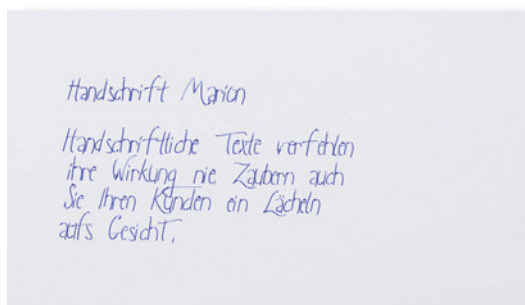 Handschrift Marion
Handschriftliche Texte verfehlen
ihre Wirkung nie. Zaubern auch
Sie Ihren Kunden ein Lächeln
aufs Gesicht.